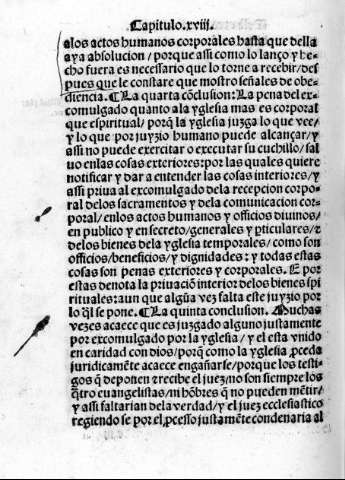 Capitulo.xviij.
alos actos humanos corporales hasta que della
aya absolucion/porque assi como lo lanço y he⸗
cho fuera es necessario que lo torne a recebir/des
pues que le constare que mostro señales de obe⸗
diencia. ¶La quarta cōclusion: La pena del ex⸗
comulgado quanto ala yglesia mas es corporal
que espiritual/porq̄ la yglesia juzga lo que vee/
y lo que por juyzio humano puede alcançar/y
assi no puede exercitar o executar su cuchillo/sal
uo enlas cosas exteriores:por las quales quiere
notificar y dar a entender las cosas interiores/y
assi priua al excomulgado dela recepcion corpo⸗
ral delos sacramentos y dela comunicacion cor⸗
poral/enlos actos humanos y officios diuinos/
en publico y en secreto/generales y pticulares/z
delos bienes dela yglesia temporales/como son
officios/beneficios/y dignidades: y todas estas
cosas son penas exteriores y corporales. E por
estas denota la priuaciō interior delos bienes spi
rituales:aun que algūa vez falta este juyzio por
lo q̄l se pone. ¶La quinta conclusion. Muchas
vezes acaece que es juzgado alguno justamente
por excomulgado por la yglesia/y el esta vnido
en caridad con dios/porq̄ como la yglesia pceda
juridicamēte acaece engañarse/porque los testi⸗
gos q̄ deponen z recibe el juez/no son siempre los
q̄tro euangelistas/ni hōbres q̄ no pueden mētir/
y assi faltarian dela verdad/y el juez ecclesiastico
regiendo se por el pcesso justamēte condenaria al